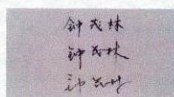 钟茂林
钟茂林
钟茂林